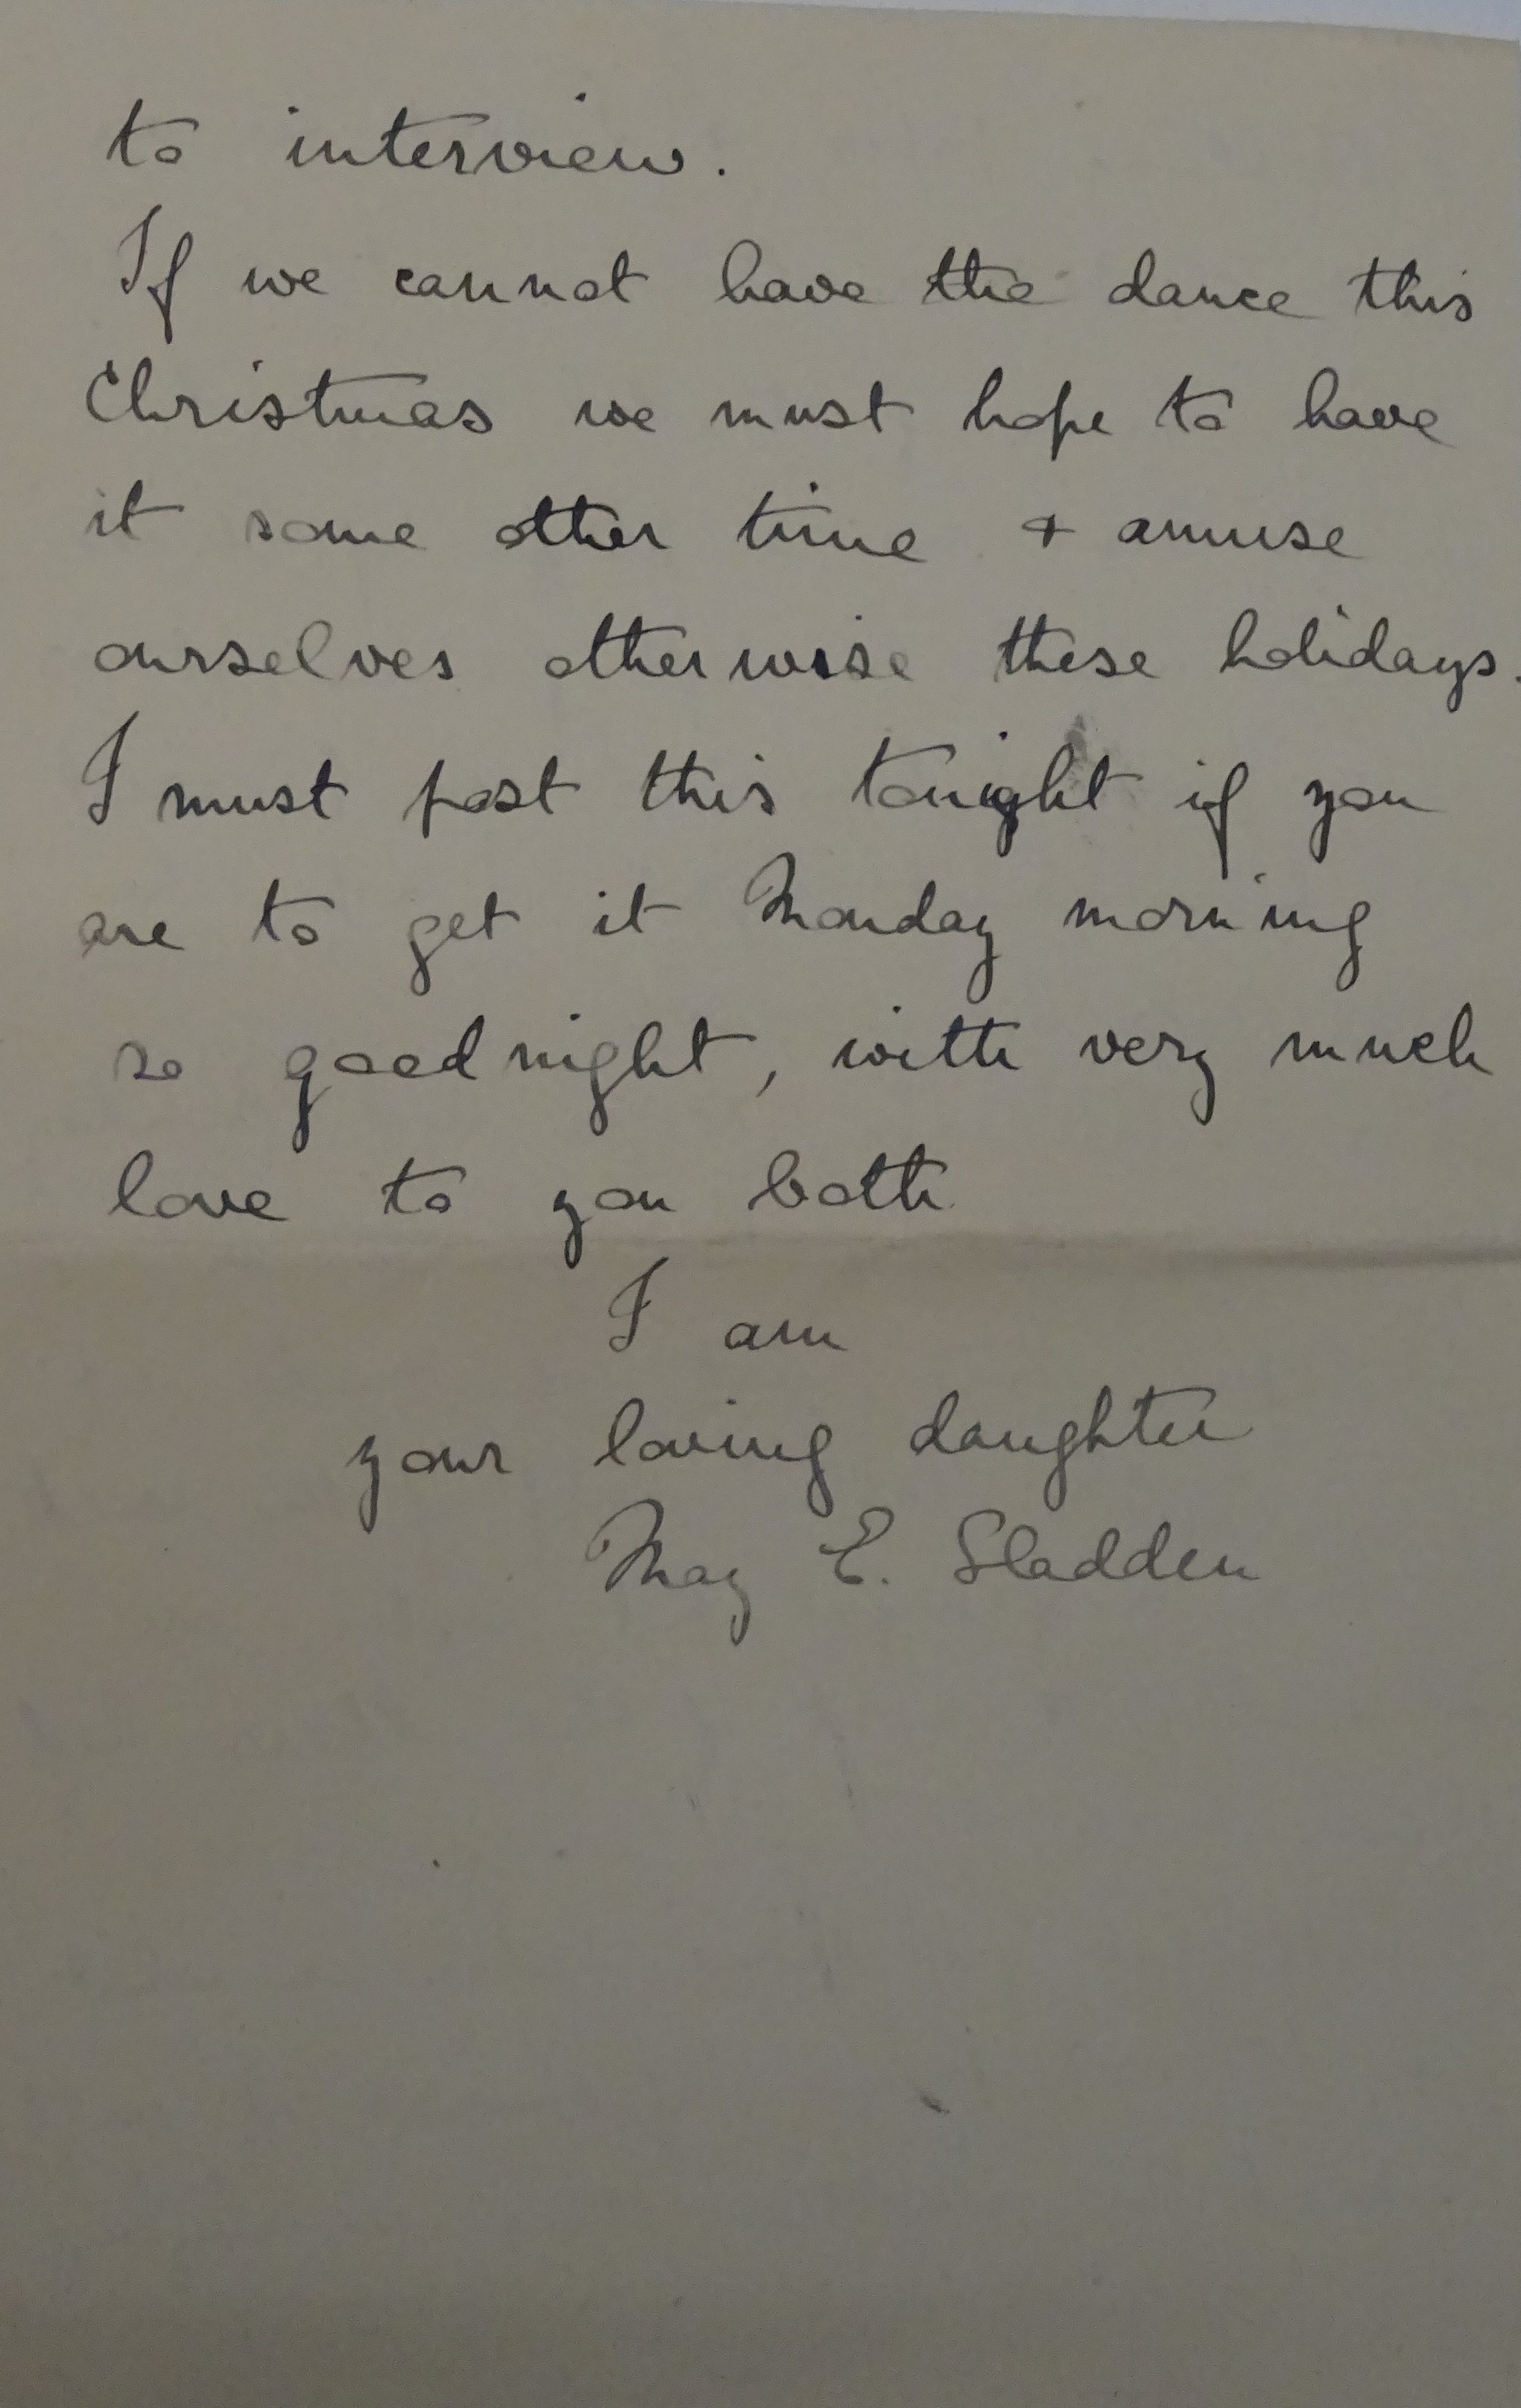 to interview.
If we cannot have the dance this
Christmas we must hope to have
it some other time + amuse
ourselves otherwise these holidays.
I must post this tonight if you
are to get it Monday morning
so goodnight, with very much
love to you both
I am
your loving daughter
May E. Sladden